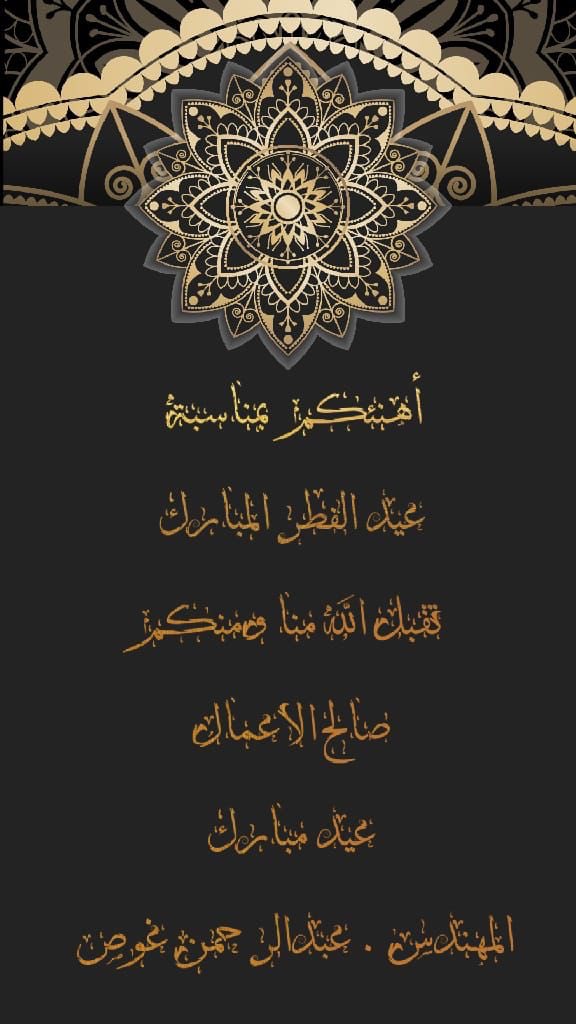 أهنئكم بمناسبة
عيد الفطر المبارك
تقبل الله منا ومنكم
صالح الأعمال
عيد مبارك
المهندس . عبدالرحمن غوص